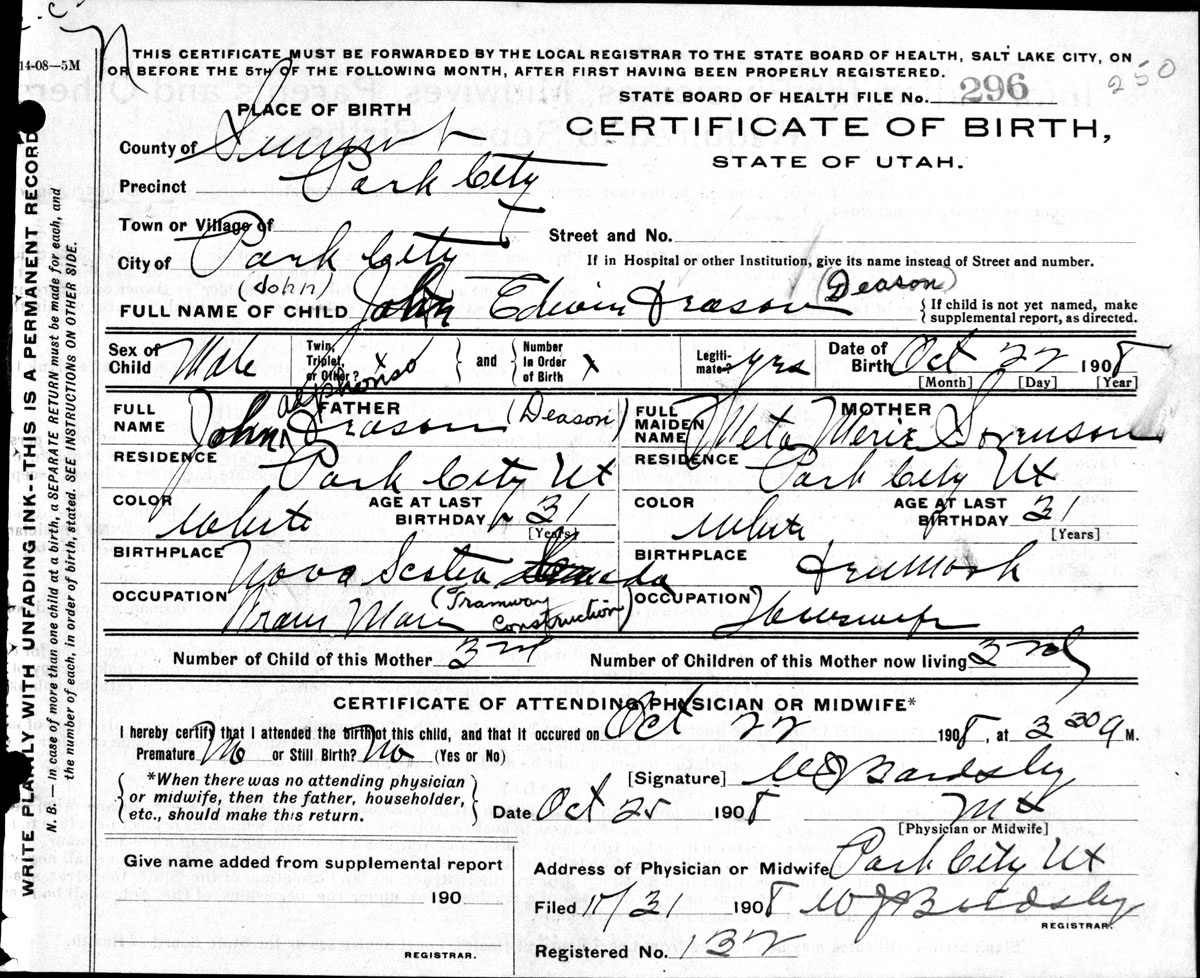 THIS CERTIFICATE MUST BE FORWARDED BY THE LOCAL REGISTRAR TO THE STATE BOARD OF HEALTH, SALT LAKE CITY, ON
14-08—5M
OR BEFORE THE 5TH OF THE FOLLOWING MONTH, AFTER FIRST HAVING BEEN PROPERLY REGISTERED.
250
STATE BOARD OF HEALTH FILE No. 296
PLACE OF BIRTH
CERTIFICATE OF BIRTH,
STATE OF UTAH.
County of Summit
Precinct Park City
Town or Village of
Street and No.
City of Park City
If in Hospital or other Institution, give its name instead of Street and number.
(John) (Deason)
FULL NAME OF CHILD John Edwin Deason { If child is not yet named, make supplemental report, as directed.
Sex of Child Male Twin, Triplet, or Other? x } and { Number in Order of Birth x Legiti-mate? yes Date of Birth Oct 22 1908
[Month] [Day] [Year]
alphonso
FULL NAME FATHER John Deason (Deason)
FULL MAIDEN NAME MOTHER Meta Merie Sorenson
RESIDENCE Park City Ut
RESIDENCE Park City Ut
COLOR White AGE AT LAST BIRTHDAY 31 [Years]
COLOR White AGE AT LAST BIRTHDAY 31 [Years]
BIRTHPLACE Nova Scotia Canada
BIRTHPLACE Denmark
OCCUPATION Tram Man (Tramway Construction)
OCCUPATION Housewife
Number of Child of this Mother 3rd
Number of Children of this Mother now living 3rd
CERTIFICATE OF ATTENDING PHYSICIAN OR MIDWIFE*
I hereby certify that I attended the birth of this child, and that it occured on Oct 22 1908, at 3 30 a M.
Premature No or Still Birth? No (Yes or No)
{ *When there was no attending physician or midwife, then the father, householder, etc., should make this return. }
[Signature] W J Bardsley
Date Oct 25 1908
[Physician or Midwife]
Give name added from supplemental report
190
REGISTRAR.
Address of Physician or Midwife Park City Ut
Filed 1908 W J Bardsley
REGISTRAR.
Registered No. 132
WRITE PLAINLY WITH UNFADING INK--THIS IS A PERMANENT RECORD
N. B.— in case of more than one child at a birth, a SEPARATE RETURN must be made for each, and
the number of each, in order of birth, stated. SEE INSTRUCTIONS ON OTHER SIDE.